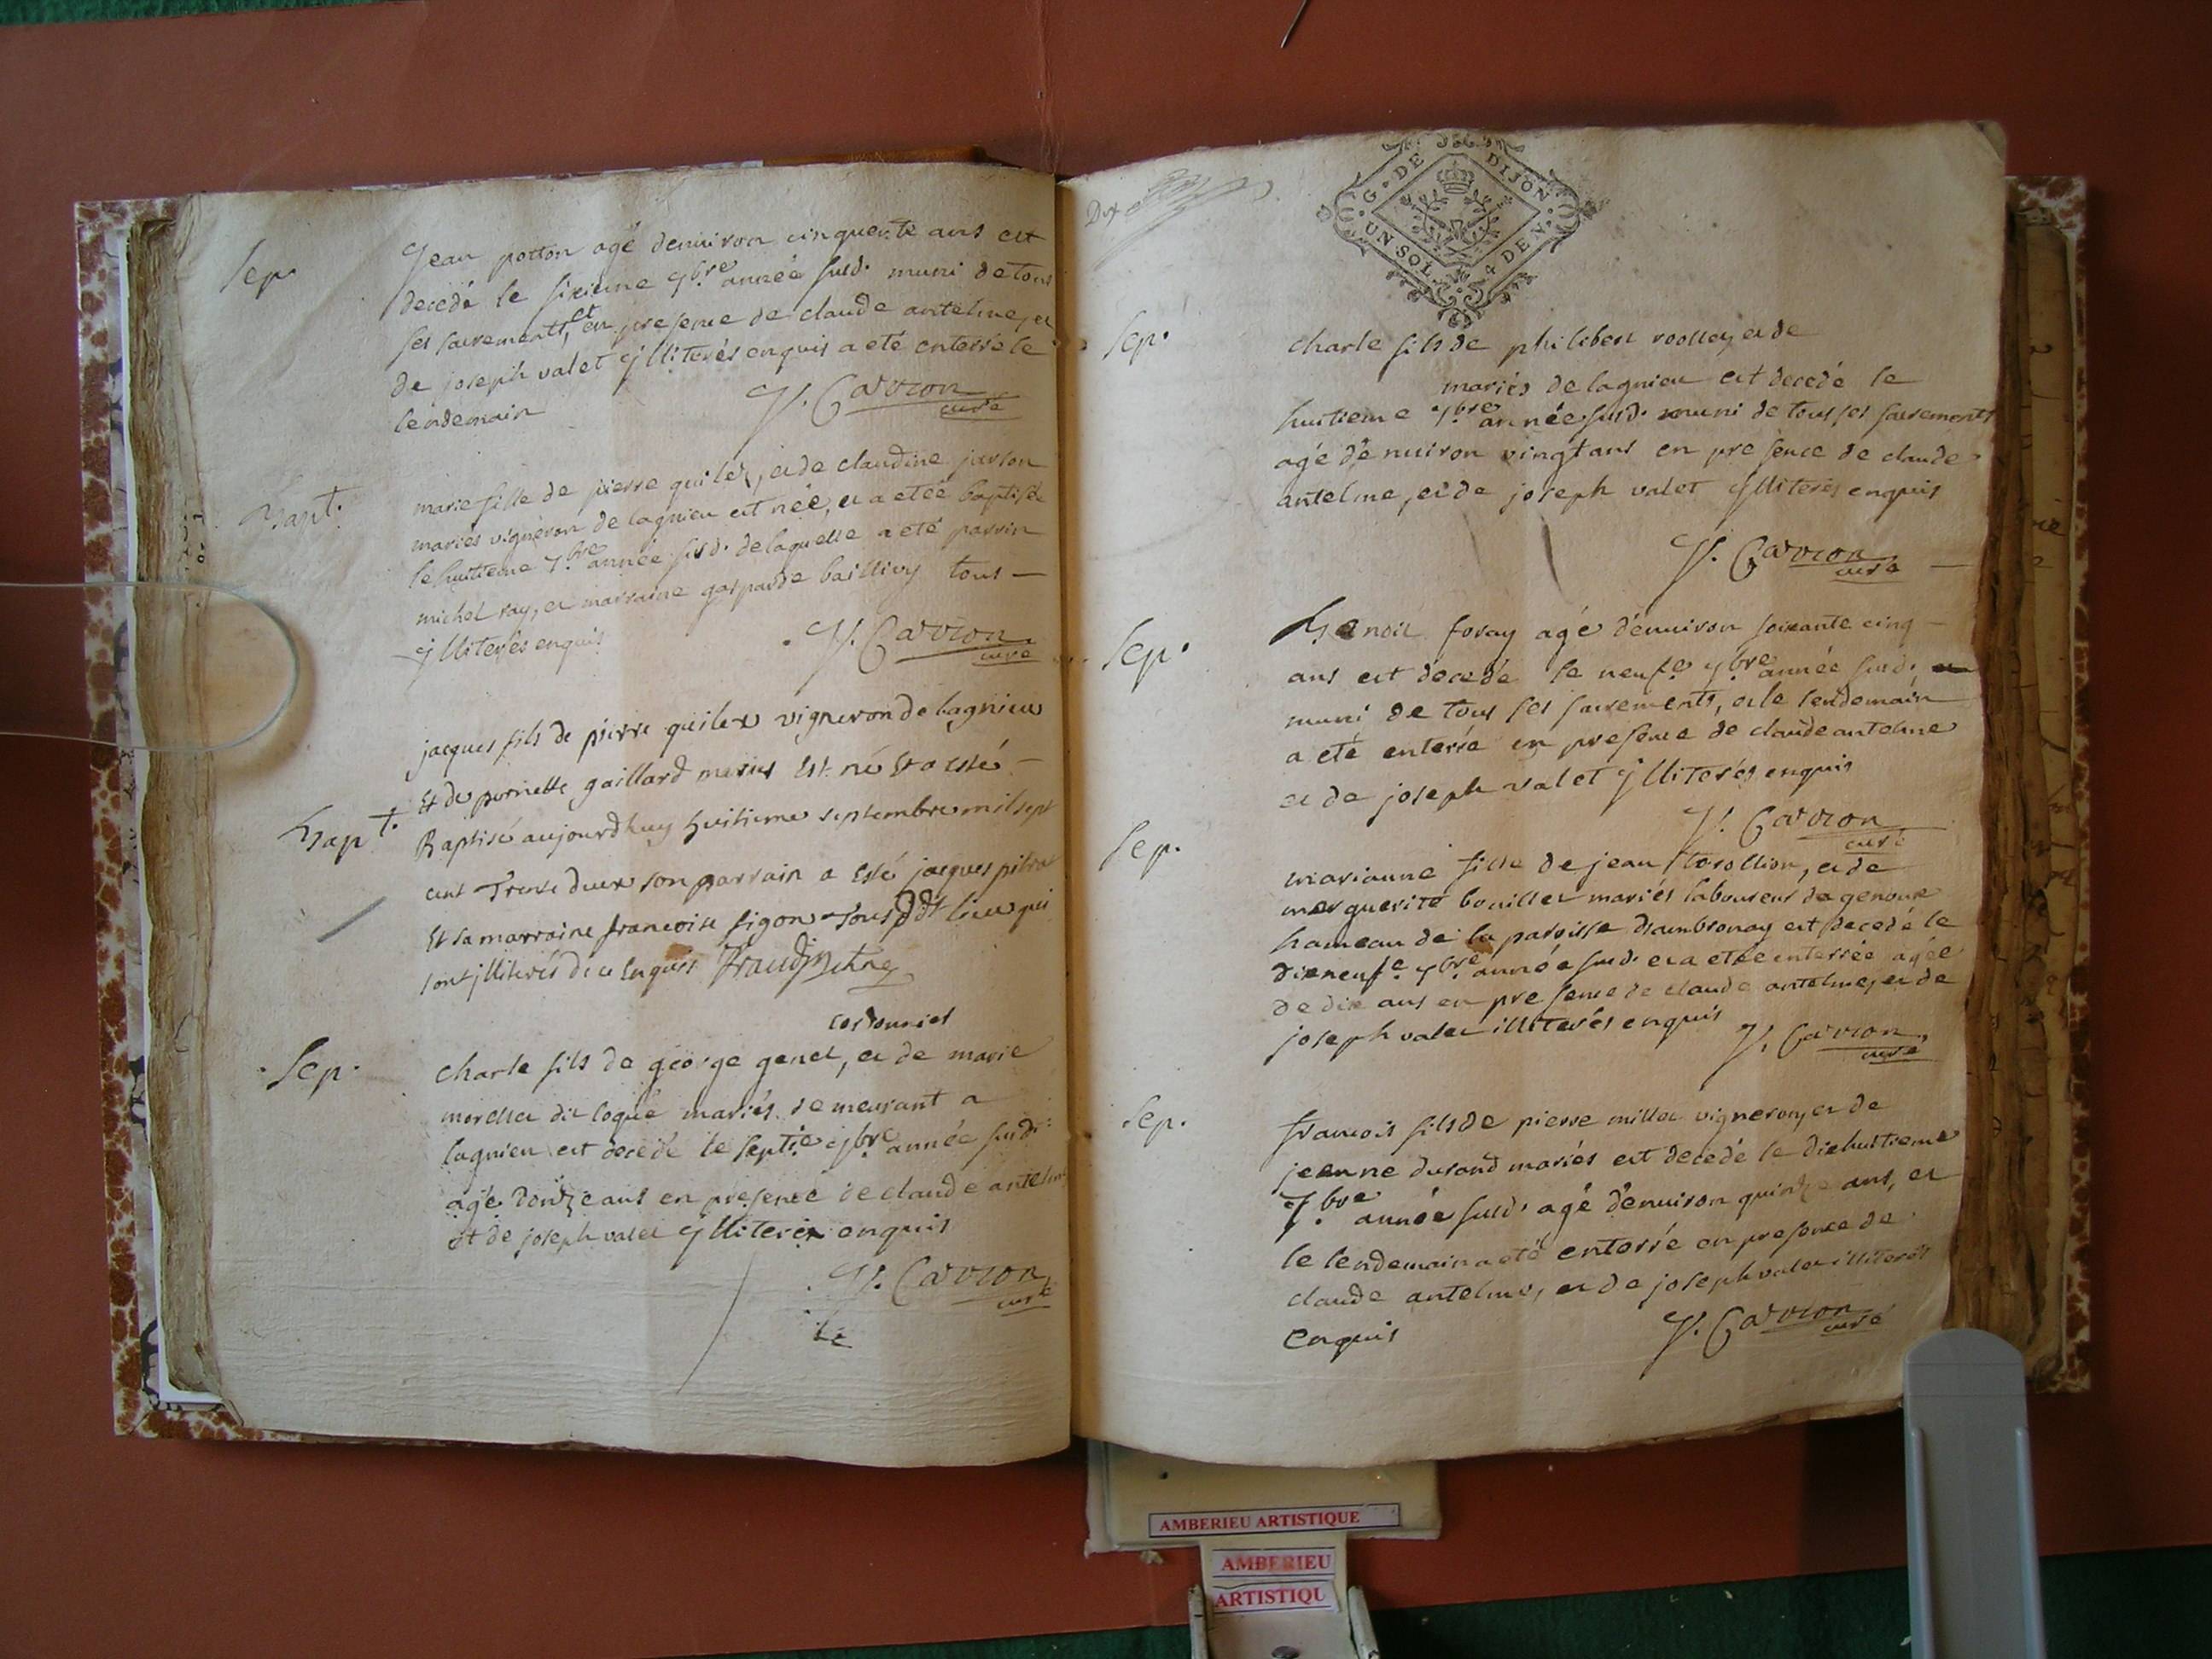 Sep.
Jean potton agé denuiron cinquente ans est
decedé le sixieme 7.bre année susd. muni de tous
ses sacrements, et en presence de claude antelme, et
de joseph valet ylliterés enquis a eté enterré le
lendemain
J. Carron
curé
Bapt.
marie fille de pierre quilex, et de claudine
mariés vigneron de lagnieu est née, et a eteé baptisée
le huitieme 7.bre année susd. de laquelle a eté parrin
michel ray, et marraine gasparde baillivy tous
ylliterés enquis
J. Carron
curé
Bapt.
jacques fils de pierre quilex vigneron de lagnieu
Et de pernette gaillard mariés Est né Et a esté
Baptisé aujourdhuy huitieme septembre mil sept
cent Trente deux son parrain a Esté jacques
Et sa marraine francoise figon Tous dudt lieu qui
sont jlliterés de ce Enquis
Sep.
cordonnier
charle fils de george genet, et de marie
dit loqué mariés demeurant a
lagnieu est decedé le septie. 7.bre année susd.
agé donze ans en presence de claude antelm
et de joseph valet ylliterés enquis
J. Carron
curé
Le
G. DE DIJON
UN SOL. 4 DEN.
Sep.
charle fils de philibert et de
mariés de lagnieu est decedé le
huitieme 7.bre année susd. muni de tous ses sacrements
agé dénuiron vingt ans en presence de claude
antelme, et de joseph valet ylliterés enquis
J. Carron
curé
Sep.
Benoit foray agé dénuiron soixante cinq
ans est décedé le neufe. 7.bre année susd.
muni de tous ses sacrements, et le lendemain
a eté enterré en presence de claude antelme
et de joseph valet ylliterés enquis
J. Carron
curé
Sep.
marianne fille de jean et de
marguerite bouillet mariés laboureur de genoux
hameau de la paroisse dambronay est decedé le
dixneufe. 7.bre année susd. et a eteé enterrée agée
de dix ans en presence de claude antelme, et de
joseph valet illiterés enquis
J. Carron
curé
Sep.
francois fils de pierre millet vigneron, et de
jeanne durand mariés est decedé le dixhuitieme
7.bre année susd. agé dénuiron quinze ans, et
le lendemain a eté enterré en presence de
claude antelme, et de joseph valet illiterés
enquis
J. Carron
curé
AMBERIEU ARTISTIQUE
AMBERIEU
ARTISTIQU